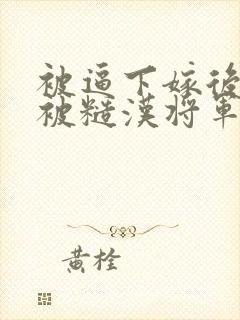 被逼下嫁後
被糙漢將軍
黃栓